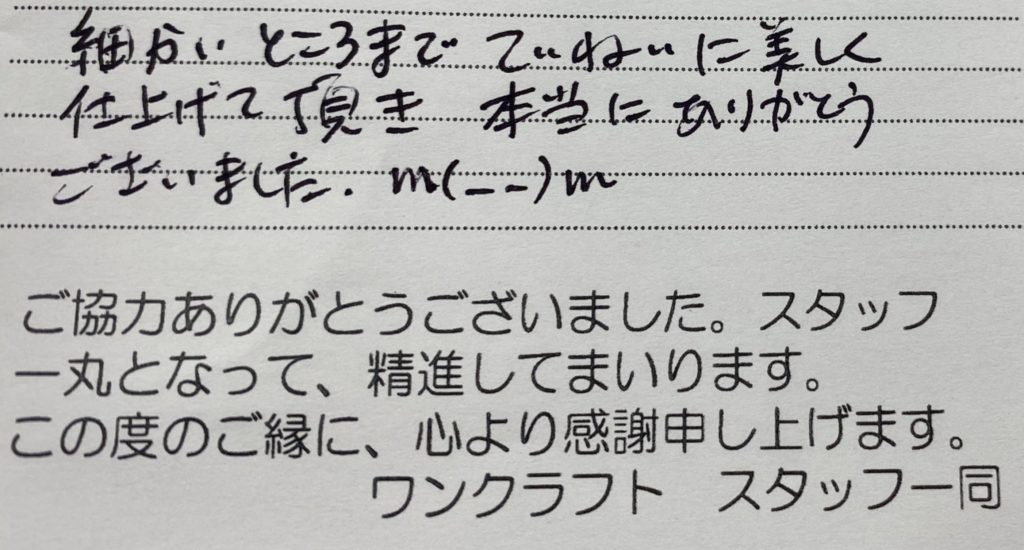 細かいところまで ていねいに美しく
仕上げて頂き 本当にありがとう
ございました. m(__)m
ご協力ありがとうございました。スタッフ
一丸となって、精進してまいります。
この度のご縁に、心より感謝申し上げます。
ワンクラフト　スタッフ一同